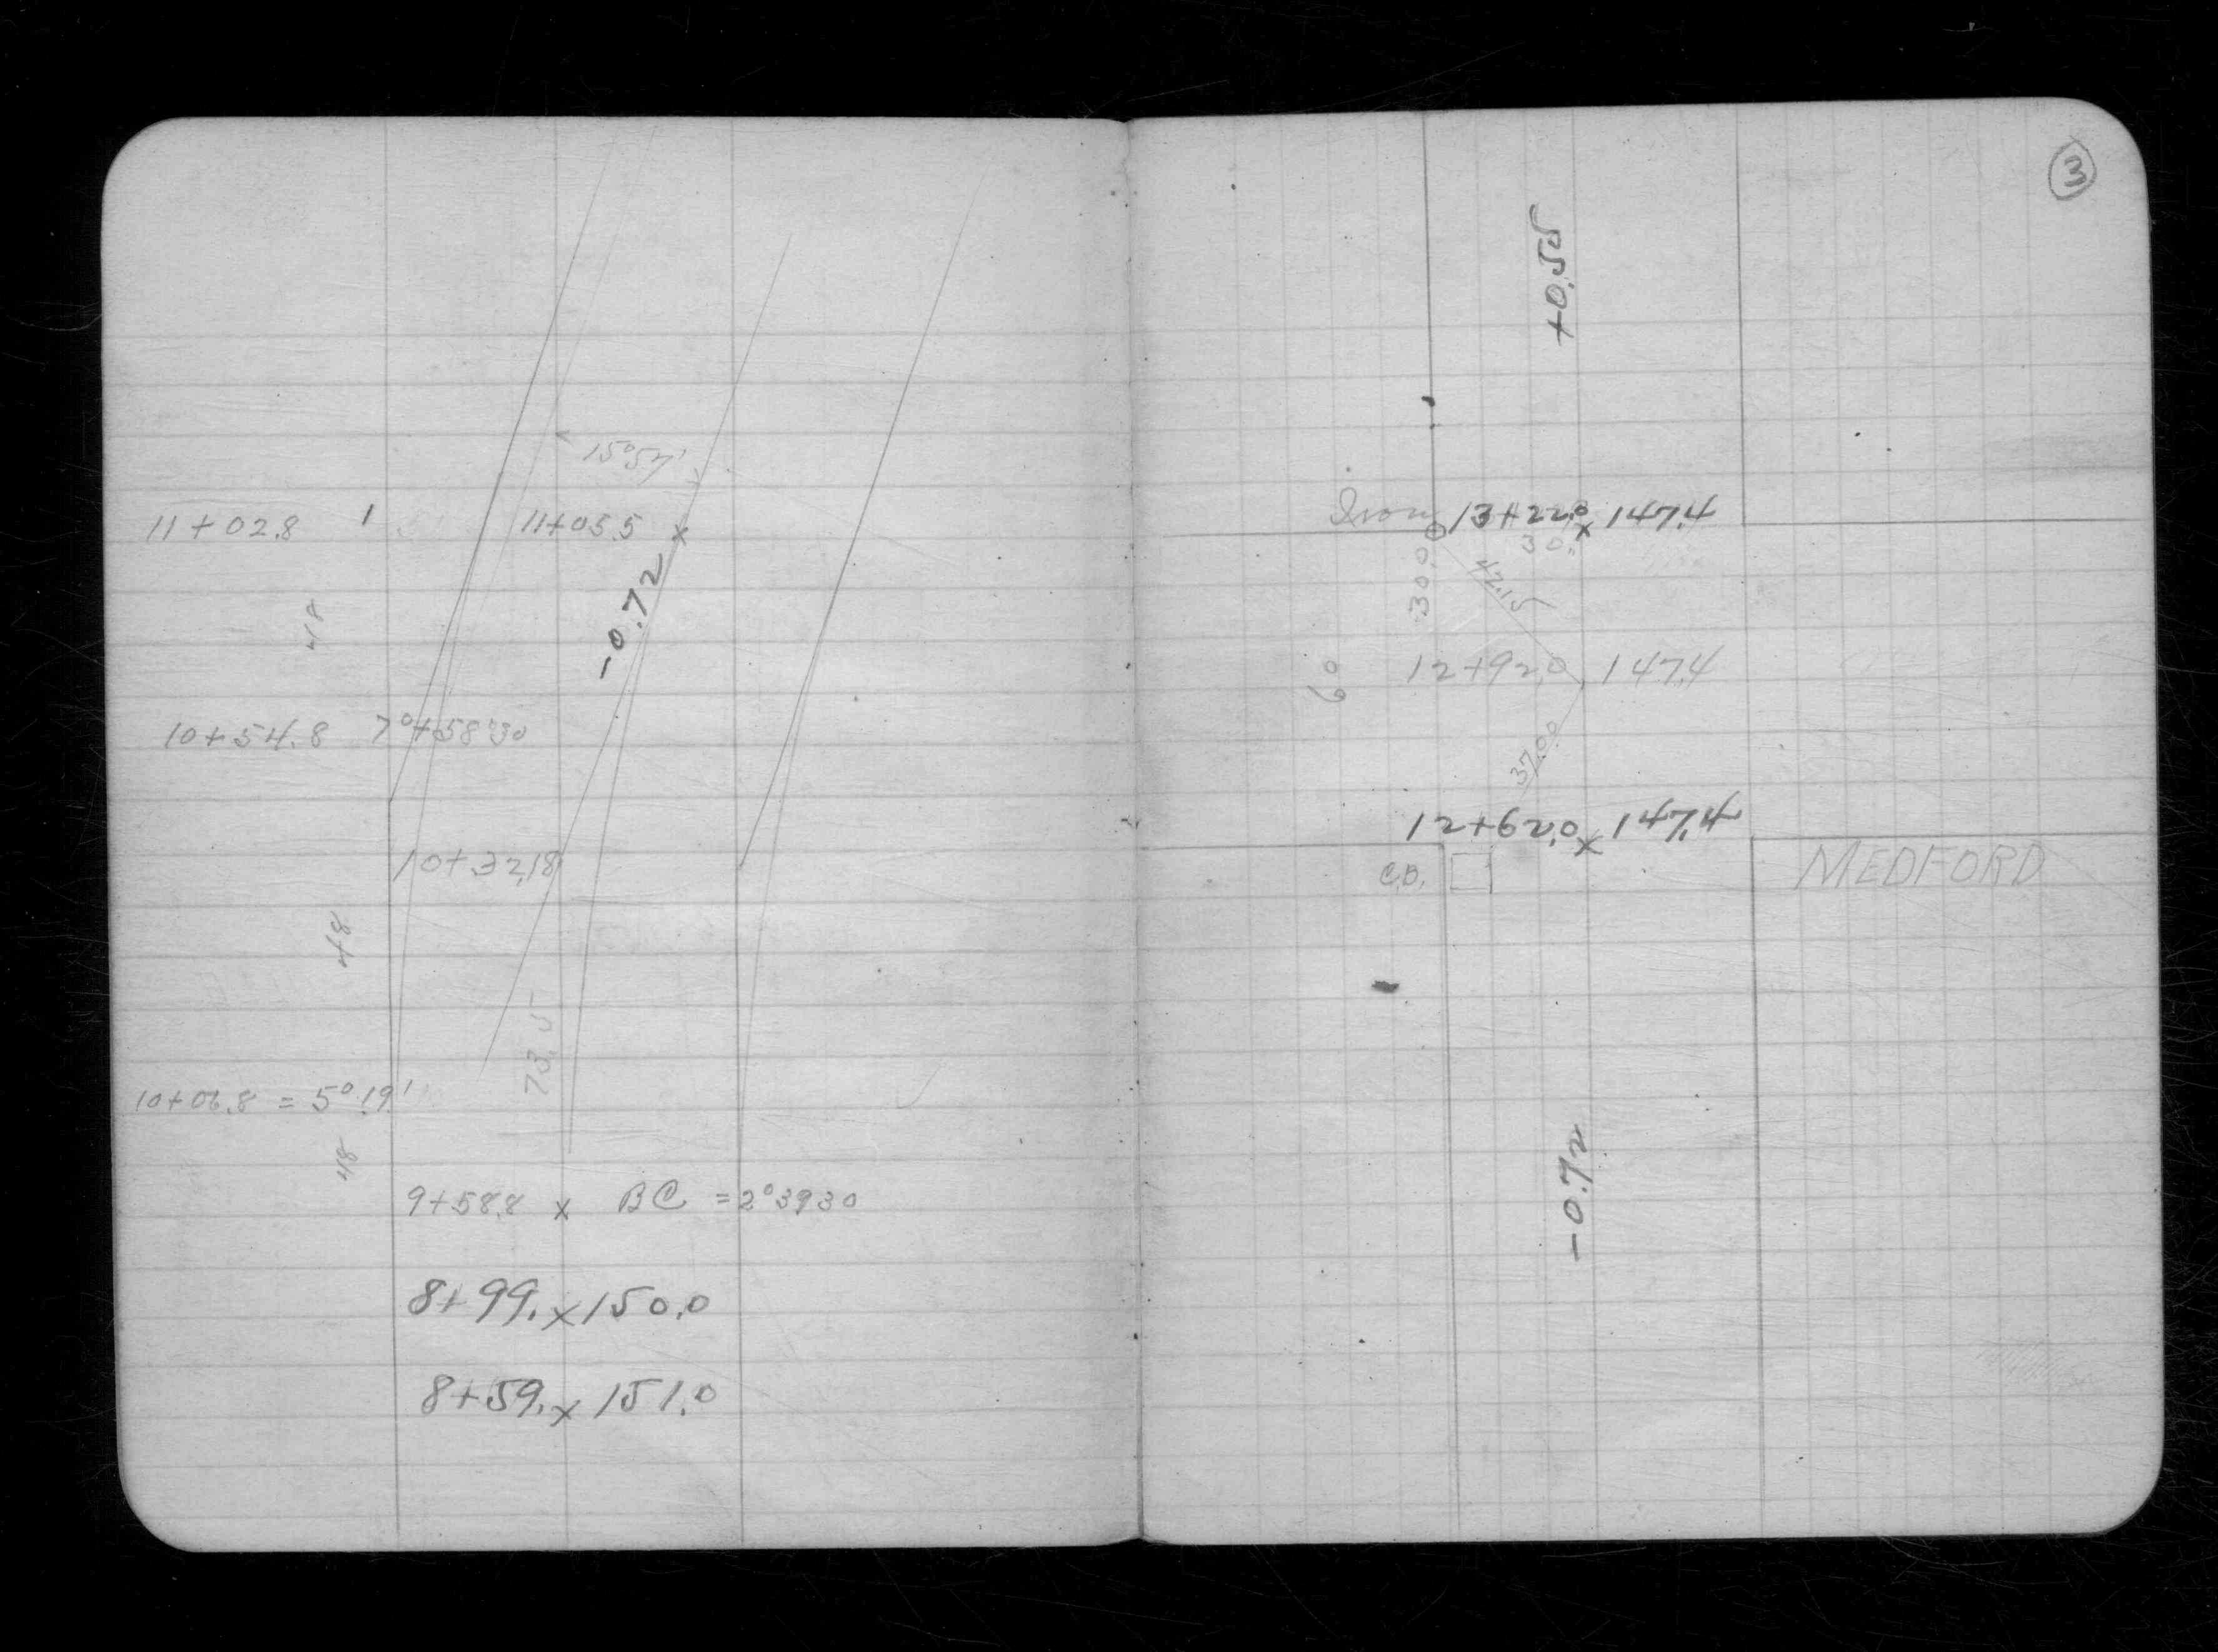 15°57'
11+02.8
11+05.5 x
-0.72
48
10+54.8 7°+58'30
10+32.18
48
73.5
10+06.8 = 5°19'
48
9+58.8 x BC = 2°3930
8+99. x 150.0
8+59. x 151.0
3
+0.55
Iron 13+22.0 x 147.4
30.0
30.
42.15
12+92.0 147.4
60
37.00
12+62.0 x 147.4
C.B.
MEDFORD
-0.72